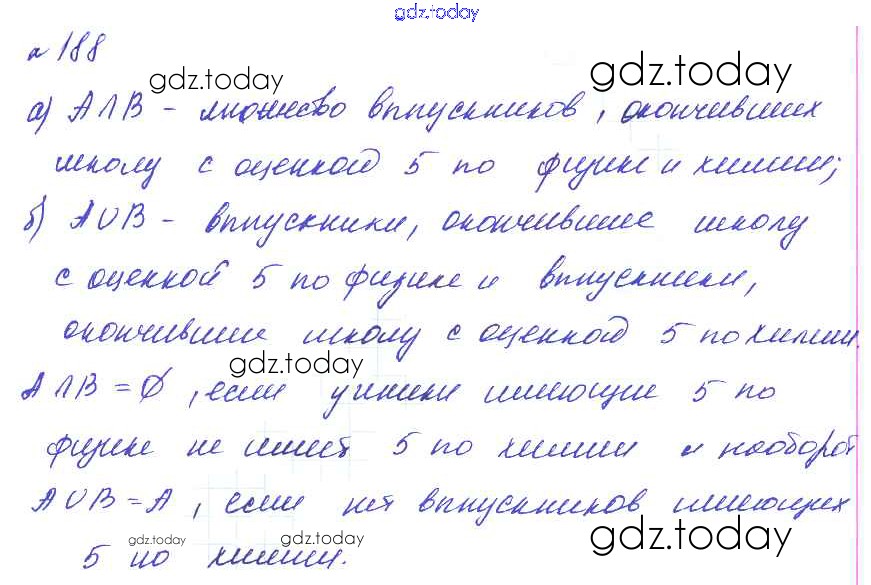 gdz.today
№ 188
gdz.today gdz.today
а) A∩B - множество выпускников, окончивших
школу с оценкой 5 по физике и химии;
б) A∪B - выпускники, окончившие школу
с оценкой 5 по физике и выпускники,
окончившие школу с оценкой 5 по химии.
gdz.today
A∩B = ∅, если ученики имеющие 5 по
физике не имеет 5 по химии и наоборот
A∪B = A, если нет выпускников имеющих
gdz.today gdz.today gdz.today
5 по химии.